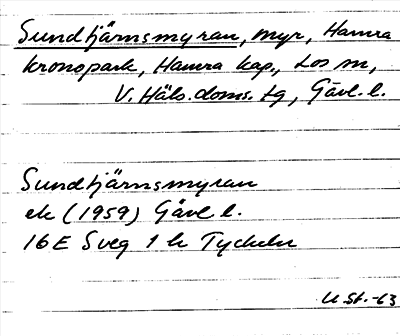 Sundtjärnsmyran, myr, Hamra
kronopark, Hamra kap., Los sn,
V. Häls. doms. tg, Gävl. l.
Sundtjärnsmyran
ek (1959) Gävl l.
16E Sveg 1 h Tyckeln
U St.-63